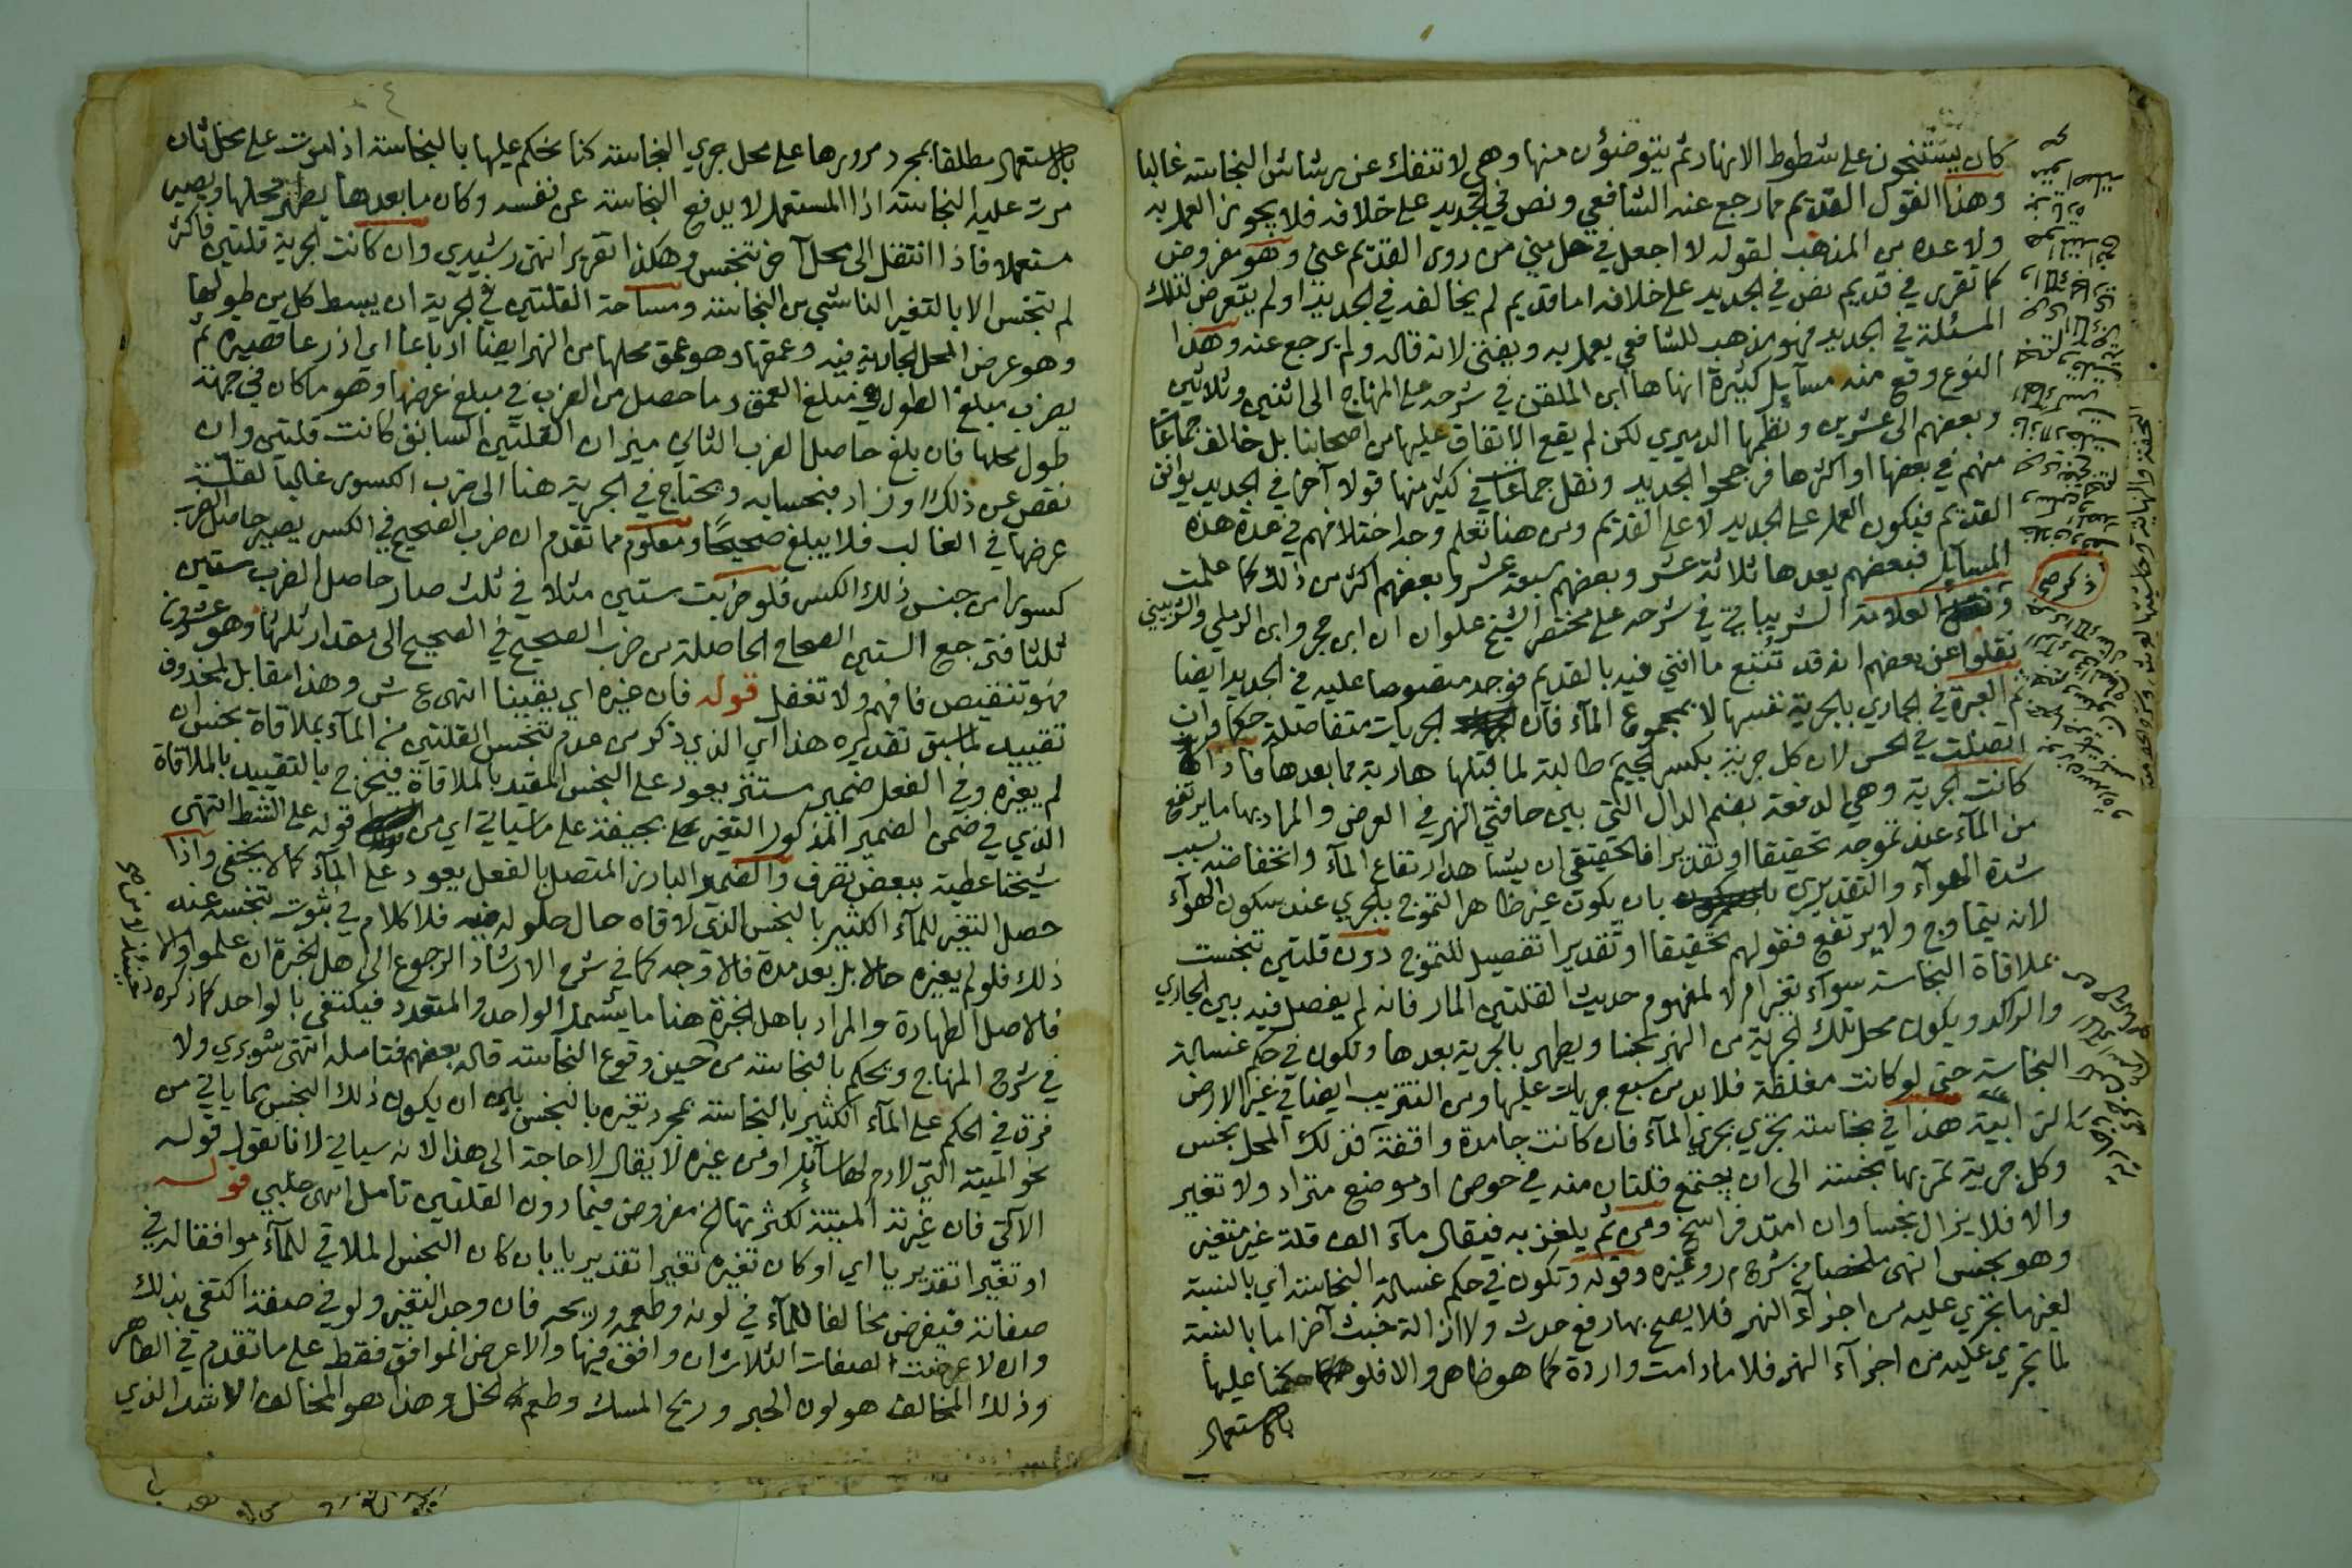 كان يستنجون على شطوط الانهار ثم يتوضئون منها وهي لا تنفك عن رشاش النجاسة غالبا
وهذا القول القديم مما رجع عنه الشافعي ونص في الجديد على خلافه فلا يجوز العمل به
ولا عده من المذهب لقوله لا اجعل في حل مني من روى القديم عني وهو مفروض
كما تقرر في قديم نص في الجديد على خلافه اما قديم لم يخالفه في الجديد او لم يتعرض لتلك
المسئلة في الجديد فهو مذهب للشافعي يعمل به ويفتى لانه قاله ولم يرجع عنه وهذا
النوع وقع منه مسآيل كثيرة انهاها ابن الملقن في شرحه على المنهاج الى اثنين وثلاثين
وبعضهم الى عشرين ونظمها الدميري لكن لم يقع الاتفاق عليها من اصحابنا بل خالف جماعات
منهم في بعضها او اكثرها فرجحوا الجديد ونقل جماعات في كثير منها قولا آخر في الجديد يوافق
القديم فيكون العمل على الجديد لا على القديم ومن هنا تعلم وجه اختلافهم في عدة هذه
المسآيل فبعضهم يعدها ثلاثة عشر وبعضهم سبعة عشر وبعضهم اكثر من ذلك كما علمت
العلامة الشريباتي في شرحه على مختصر الشيخ علوان ان ابن حجر وابن الرملي والشربيني
نقلوا عن بعضهم انه قد تتبع ما افتي فيه بالقديم فوجد منصوصا عليه في الجديد ايضا
ثم العبرة في الجاري بالجرية نفسها لا بمجموع المآء فان الجريات متفاصلة حكما وان
اتصلت في الحس لان كل جرية بكسر الجيم طالبة لما قبلها هاربة مما بعدها فاذا
كانت الجرية وهي الدفعة بضم الدال التي بين حافتي النهر في العرض والمراد بها ما يرتفع
من المآء عند تموجه تحقيقا او تقديرا فالحقيقي ان يشاهد ارتفاع المآء وانخفاضه بسبب
شدة الهوآء والتقديري بان يكون غير ظاهر التموج بالجري عند سكون الهوآء
لانه يتماوج ولا يرتفع فقولهم تحقيقا او تقديرا تفصيل للتموج دون قلتين تنجست
بملاقاة النجاسة سوآء تغير ام لا لمفهوم حديث القلتين المار فانه لم يفصل فيه بين الجاري
والراكد ويكون محل تلك الجرية من النهر نجسا ويطهر بالجرية بعدها وتكون في حكم غسالة
النجاسة حتى لو كانت مغلظة فلا بد من سبع جريات عليها ومن التتريب ايضا في غير الارض
الترابية هذا في نجاسة تجري بجري المآء فان كانت جامدة واقفة فذلك المحل نجس
وكل جرية تمر بها نجسة الى ان يجتمع قلتان منه في حوض او موضع متراد ولا تغير
والا فلا يزال نجسا وان امتد فراسخ ومن ثم يلغز به فيقال مآء الف قلة غير متغير
وهو نجس انتهى ملخصا من شرح م ر وغيره وقوله وتكون في حكم غسالة النجاسة اي بالنسبة
لغير ما تجري عليه من اجزآء النهر فلا يصح بها رفع حدث ولا ازالة خبث آخر اما بالنسبة
لما تجري عليه من اجزآء النهر فلا ما دامت واردة كما هو ظاهر والا فلو حكمنا عليها
بالاستعمال
ذكر صح
بالاستعمال مطلقا بمجرد مرورها على محل جري النجاسة كنا نحكم عليها بالنجاسة اذا مرت على محل ثان
مرت عليه النجاسة اذا المستعمل لا يدفع النجاسة عن نفسه وكان ما بعدها يطهر محلها ويصير
مستعملا فاذا انتقل الى محل آخر تنجس وهكذا تقرير انتهى رشيدي وان كانت الجرية قلتين فاكثر
لم تنجس الا بالتغير الناشي من النجاسة ومساحة القلتين في الجرية ان يبسط كل من طولها
وهو عرض المحل الجارية فيه وعمقها وهو عمق محلها من النهر ايضا ارباعا اي اذرعا قصيرة ثم
يضرب مبلغ الطول في مبلغ العمق وما حصل من الضرب في مبلغ عرضها وهو ما كان في جهة
طول محلها فان بلغ حاصل الضرب الثاني ميزان القلتين السابق كانت قلتين وان
نقص عن ذلك او زاد فبحسابه ويحتاج في الجرية هنا الى ضرب الكسور غالبا لقلة
عرضها في الغالب فلا يبلغ صحيحًا ومعلوم مما تقدم ان ضرب الصحيح في الكسر يصير حاصل الضرب
كسورا من جنس ذلك الكسر فلو ضربت ستين مثلا في ثلث صار حاصل الضرب ستين
ثلثا فترجع الستين الصحاح الحاصلة من ضرب الصحيح في الصحيح الى مقدار ثلثها وهو عشرون
فهو تنقيص فافهم ولا تغفل قوله فان غيره اي يقينا انتهى ع ش وهذا مقابل لمحذوف
تقييد لما سبق تقديره هذا اي الذي ذكر من عدم تنجس القلتين من المآء بملاقاة نجس ان
لم يغيره وفي الفعل ضمير مستتر يعود على النجس المقيد بالملاقاة فيخرج بالتقييد بالملاقاة
الذي في ضمن الضمير المذكور التغير بجيفة على ما سياتي اي من قوله على الشط انتهى
شيخنا عطية ببعض تصرف والضمير البارز المتصل بالفعل يعود على المآء كما لا يخفى واذا
حصل التغير للمآء الكثير بالنجس الذي لاقاه حال حلوله فيه فلا كلام في ثبوت تنجسه عند
ذلك فلو لم يغيره حالا بل بعد مدة فالاوجه كما في شرح الارشاد الرجوع الى اهل الخبرة ان علموا والا
فالاصل الطهارة والمراد باهل الخبرة هنا ما يشمل الواحد والمتعدد فيكتفى بالواحد كما ذكره
في شرح المنهاج ويحكم بالنجاسة من حين وقوع النجاسة قاله بعضهم فتامله انتهى شوبري ولا
فرق في الحكم على المآء الكثير بالنجاسة بمجرد تغيره بالنجس بين ان يكون ذلك النجس مما ياتي من
نحو الميتة التي لا دم لها سآئل او من غيره لا يقال لا حاجة الى هذا لانه سياتي لانا نقول قوله
الآتي فان غيرته الميتة لكثرتها الخ مفروض فيما دون القلتين تامل انتهى حلبي قوله
او تغيّرا تقديريا اي او كان تغيره تغيرا تقديريا بان كان النجس الملاقي للمآء موافقا له في
صفاته فيفرض مخالفا للمآء في لونه وطعمه وريحه فان وجد التغير ولو في صفة اكتفي بذلك
وان لا عرضت الصفات الثلاث ان وافق فيها والا عرض الموافق فقط على ما تقدم في الطاهر
وذلك المخالف هو لون الحبر وريح المسك وطعم الخل وهذا هو المخالف الاشد الذي